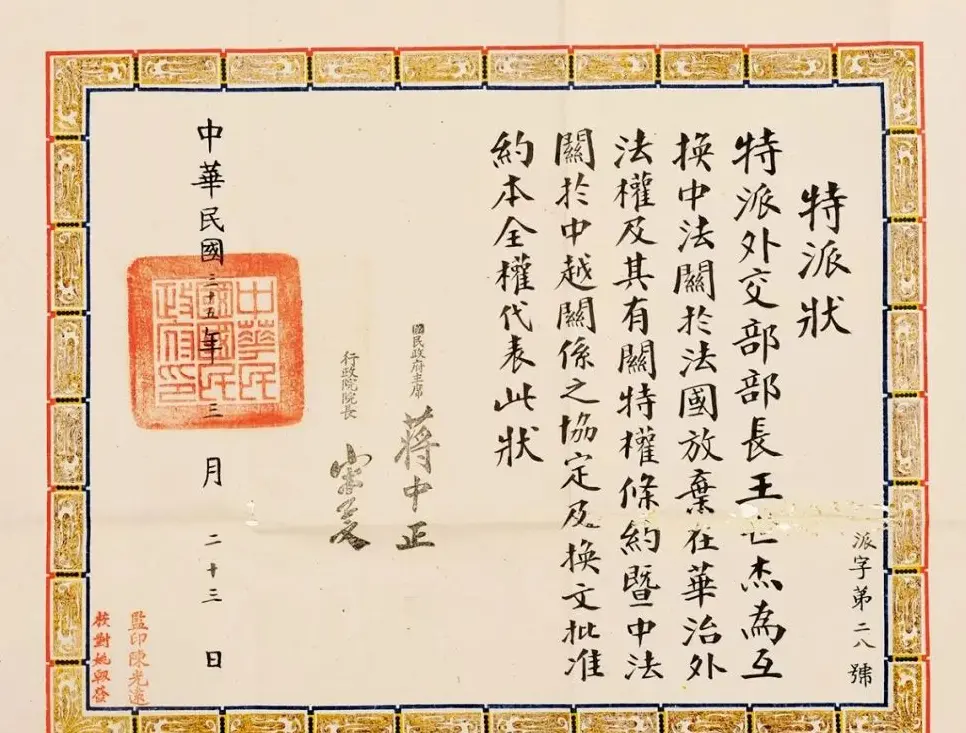 特派狀
特派外交部部長王世杰為互
換中法關於法國放棄在華治外
法權及其有關特權條約暨中法
關於中越關係之協定及換文批准
約本全權代表此狀
派字第二八號
國民政府主席 蔣中正
行政院院長 宋子文
中華民國三十五年三月二十三日
中華民國國民政府印
監印陳光遠
校對姚興發